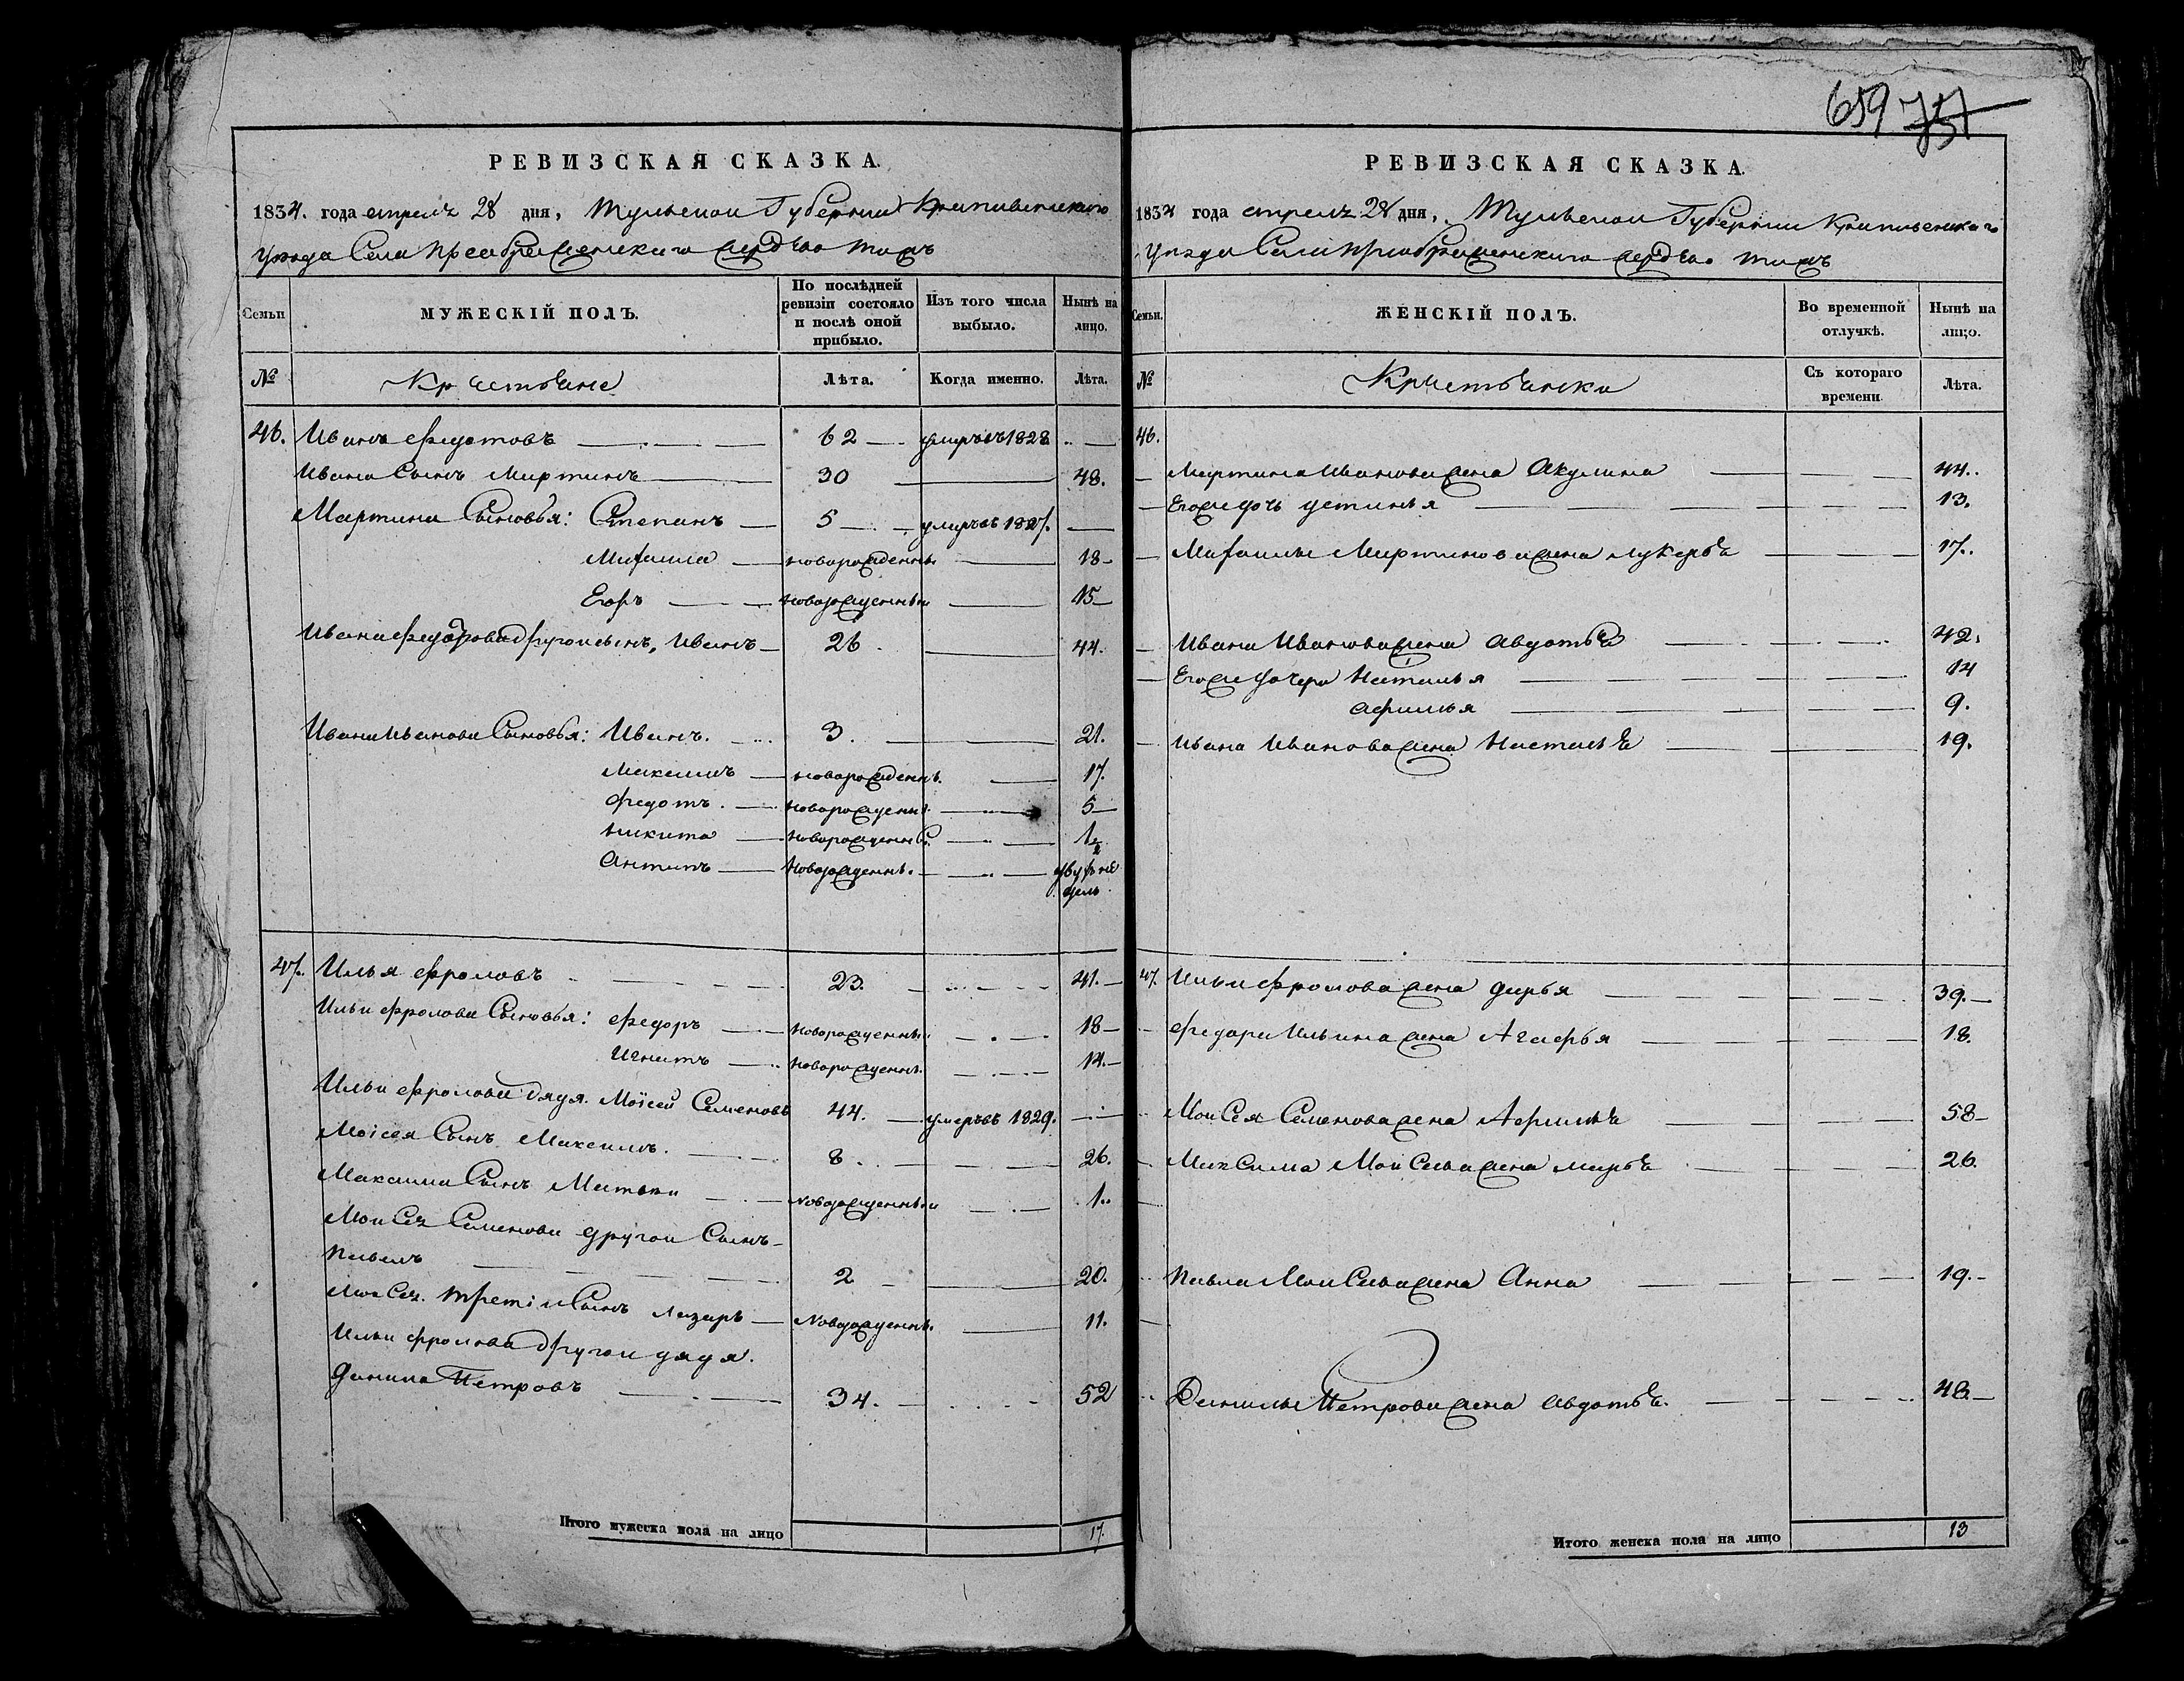 659 751
РЕВИЗСКАЯ СКАЗКА.
1834. года апреля 28 дня, Тульской Губернии Крапивенского
уезда Села Преображенского Сердѣево тожъ
Семьи
МУЖЕСКІЙ ПОЛЪ.
По послѣдней ревизіи состояло и послѣ оной прибыло.
Изъ того числа выбыло.
Нынѣ на лицо.
№
Крестьяне
Лѣта.
Когда именно.
Лѣта.
46. Иванъ Федотовъ 62 умръ въ 1828
Ивана Сынъ Мартинъ 30 48.
Мартина Сыновья: Степанъ 5 умръ въ 1827.
Михаила новорожденны 18
Егоръ новорожденныи 15
Ивана Федотова другои сынъ, Иванъ 26 44.
Ивана Иванова Сыновья: Иванъ. 3. 21.
Максимъ новорожденнъ. 17.
Федотъ. новорожденны 5
Никита новорожденны. 1 1/2
Антипъ новорожденнъ. двухъ недель
47. Илья Фроловъ 23. 41.
Ильи Фролова Сыновья: Федоръ новорожденныи 18
Игнатъ новорожденнъ. 14.
Ильи Фролова дядя. Моісей Семеновъ 44. умеръ въ 1829.
Моісея Сынъ Максимъ. 8. 26.
Максима Сынъ Матвѣи Новорожденныи 1.
Моисея Семенова другои Сынъ
Павелъ 2 20.
Моисея. третіи Сынъ Лазарь Новорожденнъ. 11.
Ильи Фролова другои дядя.
Данила Петровъ 34. 52
Итого мужеска пола на лицо 17.
РЕВИЗСКАЯ СКАЗКА.
1834 года апреля 28 дня, Тульской Губернии Крапивенского
уезда Села Преображенского Сердѣево тожъ
Семьи.
ЖЕНСКІЙ ПОЛЪ.
Во временной отлучкѣ.
Нынѣ на лицо.
№
Крестьянки
Съ котораго времени
Лѣта.
46.
Мартина Иванова жена Акулина 44.
Его же дочь Устинья 13.
Михаилы Мартинова жена Лукерья 17.
Ивана Иванова жена Авдотья 42.
Его же дочери Наталья 14
Афимья 9.
Ивана Иванова жена Наталья 19.
47. Ильи Фролова жена Дарья 39.
Федора Ильина жена Агафья 18.
Моисея Семенова жена Афимья 58
Максима Моисеева жена Марья 26.
Павла Моисеева жена Анна 19.
Данилы Петрова жена Авдотья. 48.
Итого женска пола на лицо 13